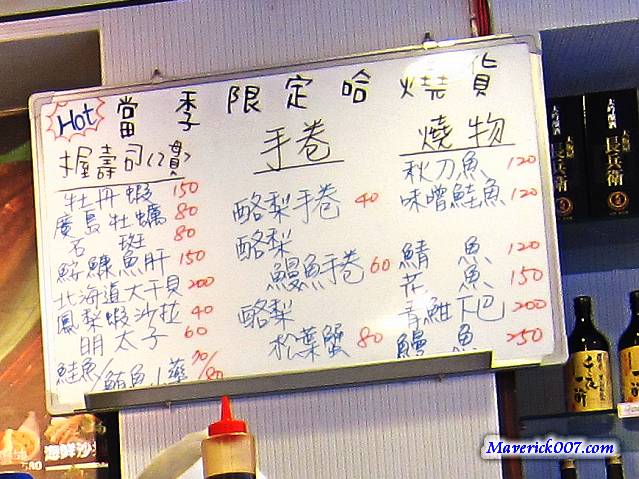 Hot 當季限定哈燒貨
握壽司(2貫)
牡丹蝦 150
廣島牡蠣 80
石斑 80
鮟鱇魚肝 150
北海道大干貝 200
鳳梨蝦沙拉 40
明太子 60
鮭魚/鮪魚 70/80
手卷
酪梨手卷 40
酪梨
鰻魚手卷 60
酪梨
松葉蟹 80
燒物
秋刀魚 120
味噌鮭魚 120
鯖魚 120
花魚 150
青魽下巴 200
鰻魚 250
大吟醸酒
長兵衛
大吟醸酒
長兵衛
海鮮沙
Maverick007.com